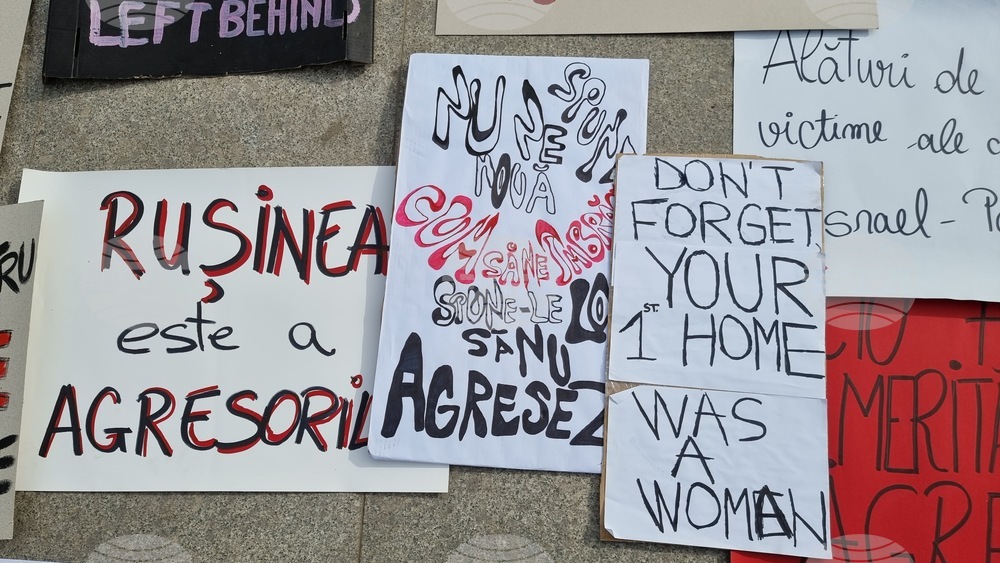 LEFT BEHIND
RUȘINEA
este a
AGRESORIL
NU NE
SPUNE
NOUĂ
CUM
SĂ NE ÎMBRĂ
SPUNE-LE LO
SĂ NU
AGRESEZ
DON'T
FORGET
YOUR
1ST. HOME
WAS
A
WOMAN
Alături de
victime ale
srael-
RU
MERITĂ
AGRE